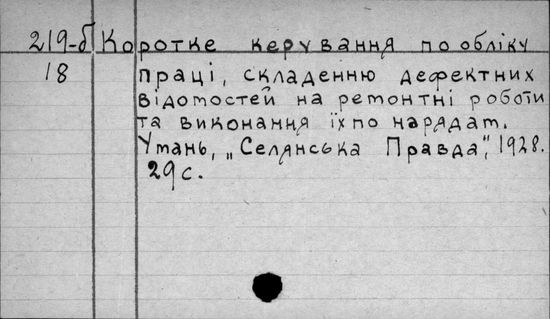 219-б Коротке керування по обліку
18 праці, складенню дефектних
відомостей на ремонтні роботи
та виконання їх по нарядам.
Умань, „Селянська Правда", 1928.
29 с.